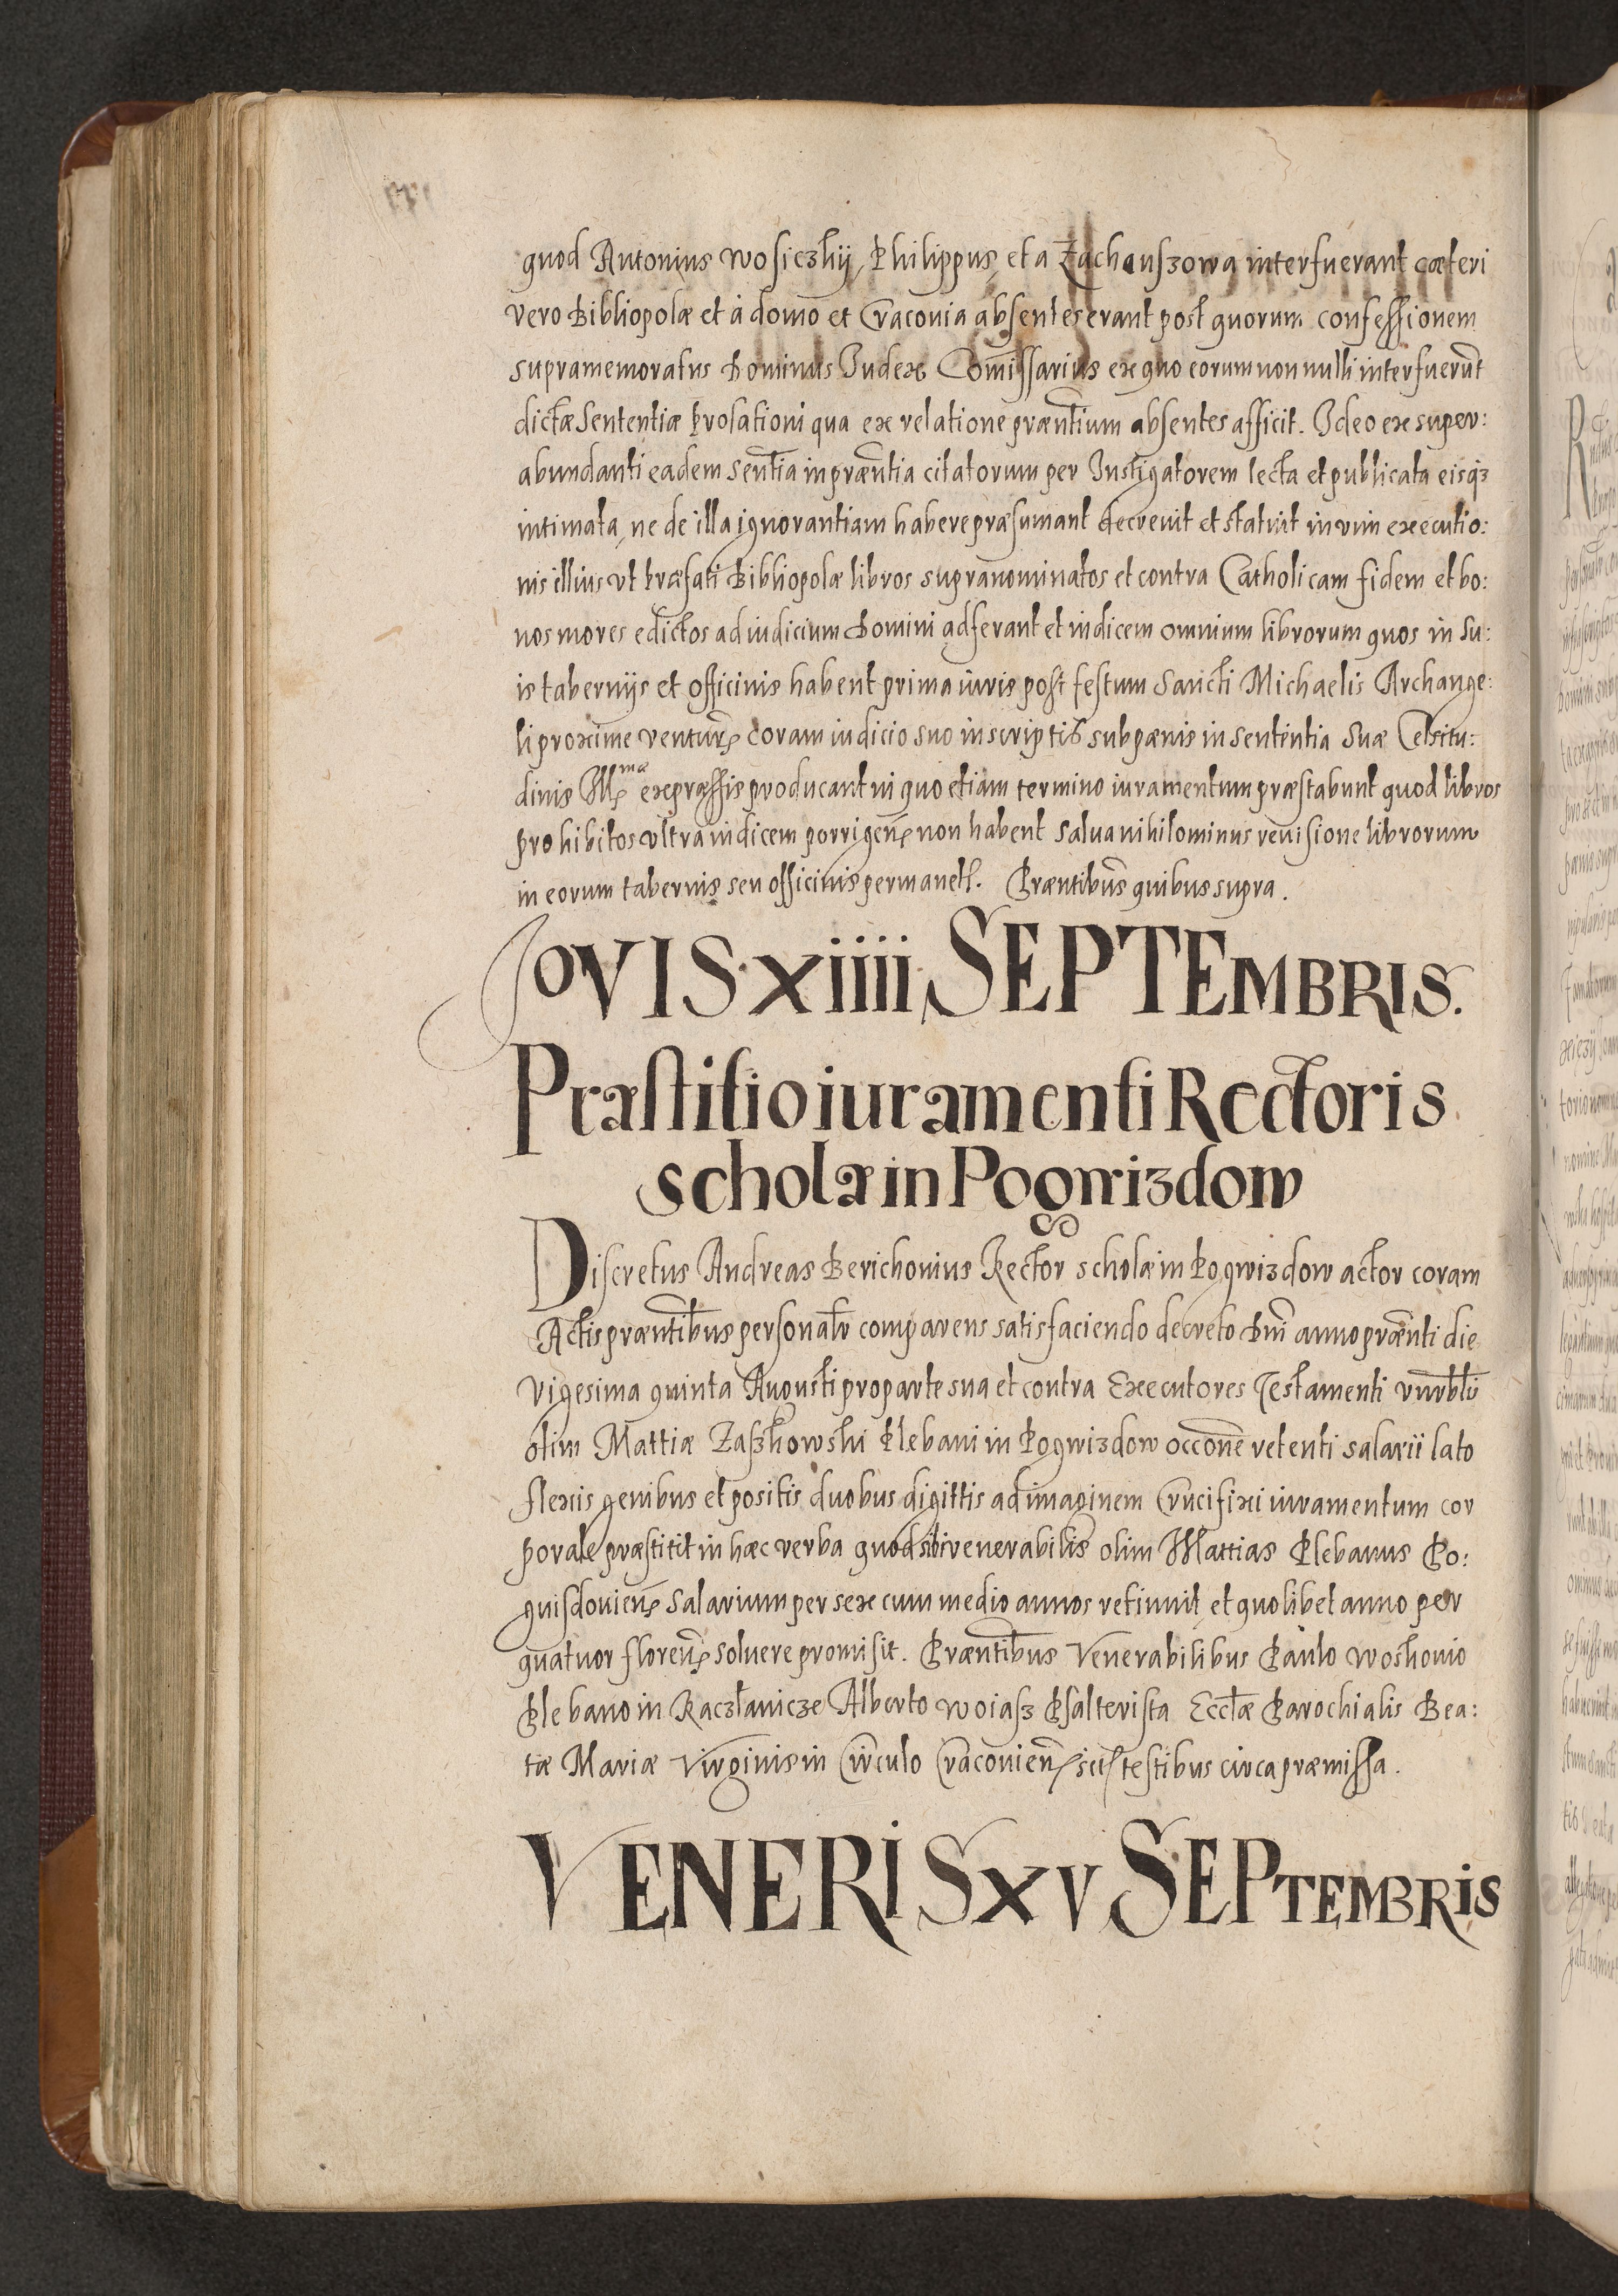 quod Antonius Wosiczkij, Philippus, et a Zachauszowa interfuerant cæteri
vero Bibliopolæ et à domo et Cracouia absentes erant post quorum confessionem
supramemoratus Dominus Judex Com̃issarius ex quo eorum non nulli interfuerũt
dictæ Sententiæ prolationi qua ex relatione præñtium absentes afficit. Ideo ex super:
abundanti eadem Señtia in præñtia citatorum per Instigatorem lecta et publicata eisq3
intimata, ne de illa ignorantiam habere præsumant decreuit et statuit in vim executio:
nis illius vt præfati Bibliopolæ libros supranominatos et contra Catholicam fidem et bo:
nos mores edictos ad iudicium Domini adferant et indicem omnium librorum quos in su:
is tabernijs et officinis habent prima iuris post festum Sancti Michaelis Archange:
li proxime ventur̃ coram iudicio suo in scriptis sub pænis in sententia Suæ Celsitu:
dinis Ill̃mæ expræssis producant in quo etiam termino iuramentum præstabunt quod libros
prohibitos vltra indicem porrigeñ non habent salua nihilominus reuisione librorum
in eorum tabernis seu officinis permaneñ. Præntibus̃ quibus supra.
JOVIS XIIII SEPTEMBRIS.
Præstitio iuramenti Rectoris
scholæ in Pogwizdow
Discretus Andreas Berichonius Rector scholæ in Pogwizdow actor coram
Actis præñtibus personal̃r comparens satisfaciendo decreto Dñi anno præñti die
vigesima quinta Augusti pro parte sua et contra Executores Testamenti vñrblis̃
olim Mattiæ Zaszkowski Plebani in Pogwizdow occõne retenti salarii lato
flexis genibus et positis duobus digittis ad imaginem Crucifixi iuramentum cor
porale præstitit in hæc verba quod sibi venerabilis olim Mattias Plebanus Po:
guisdouieñ salarium per sex cum medio annos retinuit et quolibet anno per
quatuor floreñ soluere promisit. Præñtibus Venerabilibus Paulo Woskonio
Plebano in Raczlawicze Alberto Woiasz Psalterista Eccl̃æ Parochialis Bea:
tæ Mariæ Virginis in Circulo Cracouieñ sit̃ testibus circa præmissa.
VENERIS XV SEPTEMBRIS